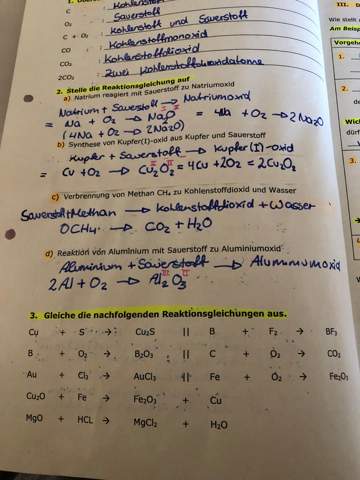 C : Kohlenstoff
O₂ : Sauerstoff
C + O₂ : Kohlenstoff und Sauerstoff
CO : Kohlenstoffmonoxid
CO₂ : Kohlenstoffdioxid
2CO₂ : Zwei
2. Stelle die Reaktionsgleichung auf
a) Natrium reagiert mit Sauerstoff zu Natriumoxid
Natrium + Sauerstoff → Natriumoxid
= Na + O₂ → = 4Na + O₂ → 2 Na₂O
(4Na + O₂ → 2Na₂O)
b) Synthese von Kupfer(I)-oxid aus Kupfer und Sauerstoff
Kupfer + Sauerstoff → Kupfer(I)-oxid
= Cu + O₂ → = 4Cu + 2O₂ = 2Cu₂O₂
c) Verbrennung von Methan CH₄ zu Kohlenstoffdioxid und Wasser
Sauerstoff+Methan → Kohlenstoffdioxid + Wasser
OCH₄ → CO₂ + H₂O
d) Reaktion von Aluminium mit Sauerstoff zu Aluminiumoxid
Aluminium + Sauerstoff → Aluminiumoxid
III II
2Al + O₂ → Al₂O₃
3. Gleiche die nachfolgenden Reaktionsgleichungen aus.
Cu + S → Cu₂S || B + F₂ → BF₃
B + O₂ → B₂O₃ || C + O₂ → CO₂
Au + Cl₂ → AuCl₃ || Fe + O₂ → Fe₂O₃
Cu₂O + Fe → Fe₂O₃ + Cu
MgO + HCL → MgCl₂ + H₂O
III. D
Wie stellt
Am Beisp
Vorgehe
1.
2.
3.